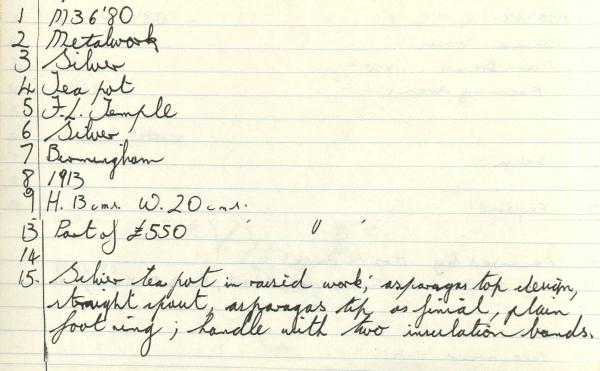 1 M36'80
2 Metalwork
3 Silver
4 Tea pot
5 F.L. Temple
6 Silver
7 Birmingham
8 1913
9 H. 13 cms. W. 20 cms.
13 Part of £550 ' " '
14
15. Silver tea pot in raisid work; asparagas top design,
straight spout, asparagas tip as finial, plain
foot ring; handle with two insulation bands.